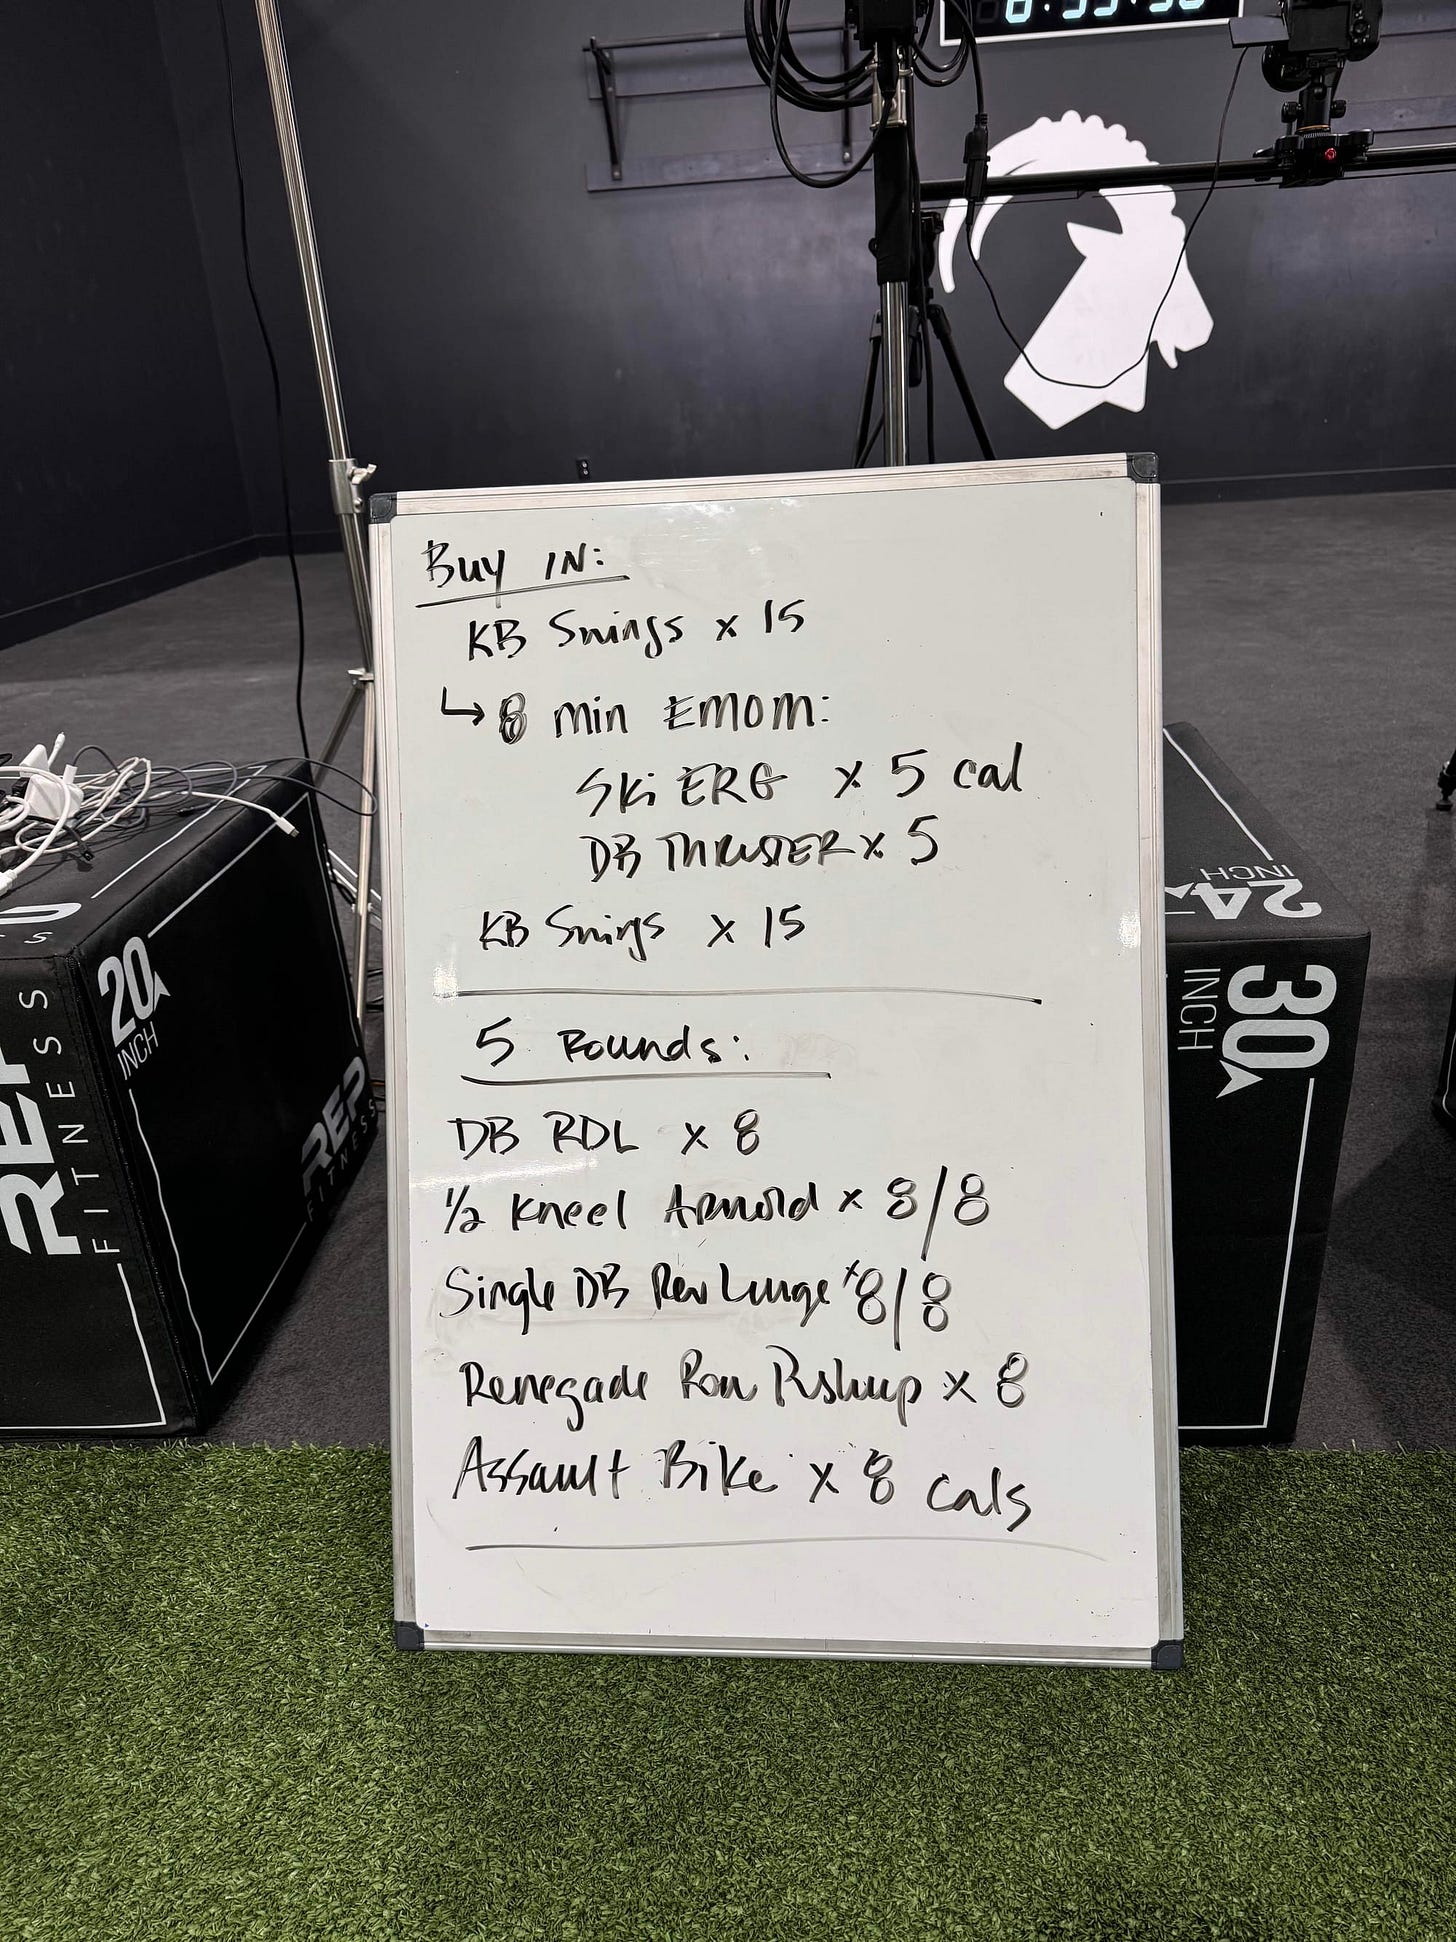 Buy IN:
KB Swings x 15
↳ 8 min EMOM:
SKi ERG x 5 cal
DB THRUSTER x 5
KB Swings x 15
5 Rounds:
DB RDL x 8
1/2 Kneel Arnold x 8/8
Single DB Rev Lunge x 8/8
Renegade Row Pushup x 8
Assault Bike x 8 cals
20
INCH
REP
FITNESS
REP
FITNESS
24
INCH
30
INCH